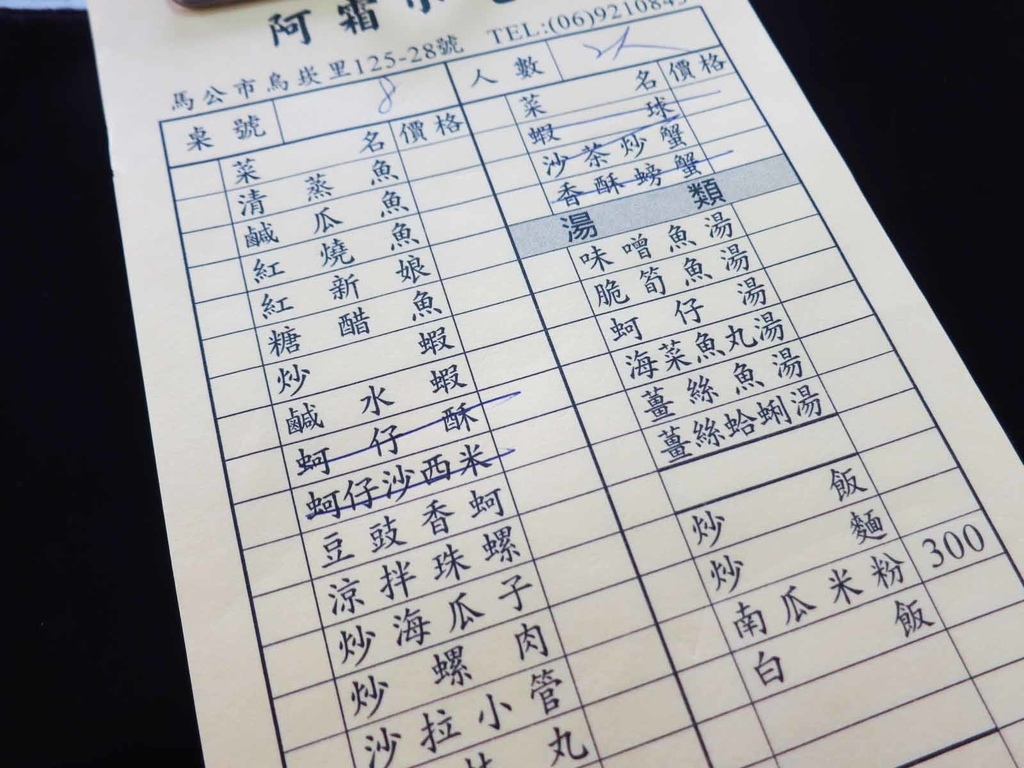 阿霜小
馬公市烏崁里125-28號 TEL:(06)921084
桌號 8 人數
菜名 價格
清蒸魚
鹹瓜魚
紅燒魚
紅新娘
糖醋魚
炒蝦
鹹水蝦
蚵仔酥
蚵仔沙西米
豆豉香蚵
涼拌珠螺
炒海瓜子
炒螺肉
沙拉小管
丸
菜名 價格
蝦球
沙茶炒蟹
香酥螃蟹
湯類
味噌魚湯
脆筍魚湯
蚵仔湯
海菜魚丸湯
薑絲魚湯
薑絲蛤蜊湯
炒飯
炒麵
南瓜米粉 300
白飯